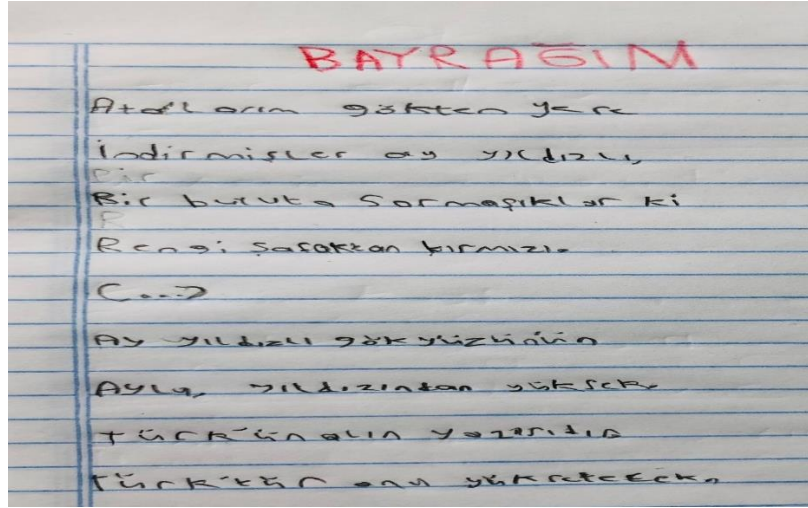 BAYRAĞIM
Atalarım gökten yere
İndirmişler ay yıldızlı,
Bir
Bir buluta sarmaşıklar ki
R
Rengi şafaktan kırmızı.
(...)
Ay yıldızlı gökyüzünün
Aylı, yıldızından yüksek.
Türk'ün alın yazısıdır
Türk'tür onu yükseltecek.